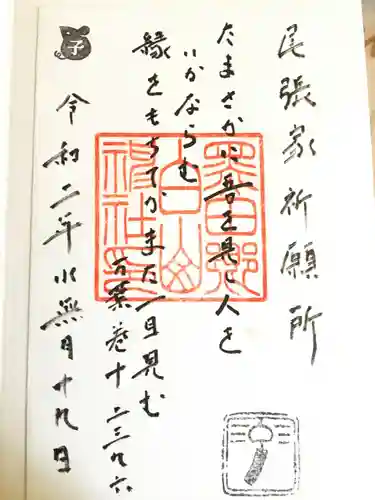 尾張家祈願所
たまさかに吾を見し人を
いかならむ
縁をもちてかまた一目見む
万葉巻十一 二三九六
令和二年水無月十九日
子